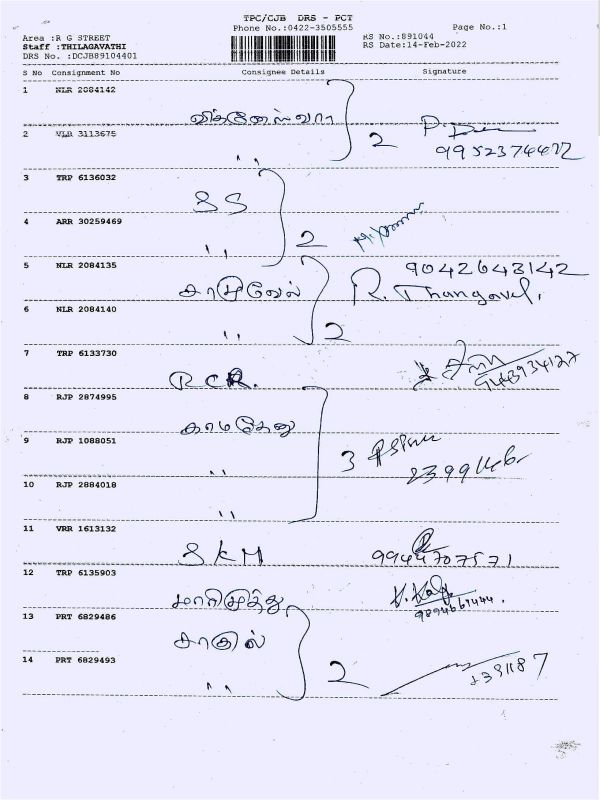 TPC/CJB DRS - PCT
Phone No.:0422-3505555 Page No.:1
Area :R G STREET RS No.:891044
Staff :THILAGAVATHI RS Date:14-Feb-2022
DRS No. :DCJB89104401
S No Consignment No Consignee Details Signature
1 NLR 2084142
விக்னேஸ்வரா
2 NLR 3113675 2
,, 9952374472
3 TRP 6136032
SS
4 ARR 30259469 2
,,
5 NLR 2084135 9042643142
சாமுவேல் R. Thangavel,
6 NLR 2084140
,, 2
7 TRP 6133730
RCR. 9443934127
8 RJP 2874995
காமதேனு
9 RJP 1088051 3
,,
10 RJP 2884018
,,
11 VRR 1613132
SKM 9944707571
12 TRP 6135903
மாரிமுத்து 9894661444.
13 PRT 6829486
14 PRT 6829493 2
,,